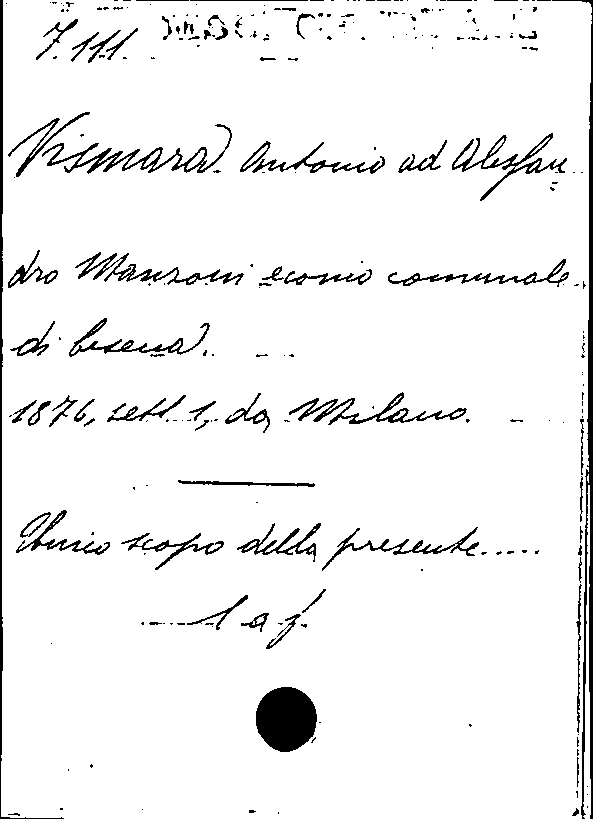 7.111.
Vismara Antonio ad Alessan=
dro Manzoni econo comunale
di Cesena.
1876, sett. 1, da Milano.
Unico scopo della presente.....
1 a f.